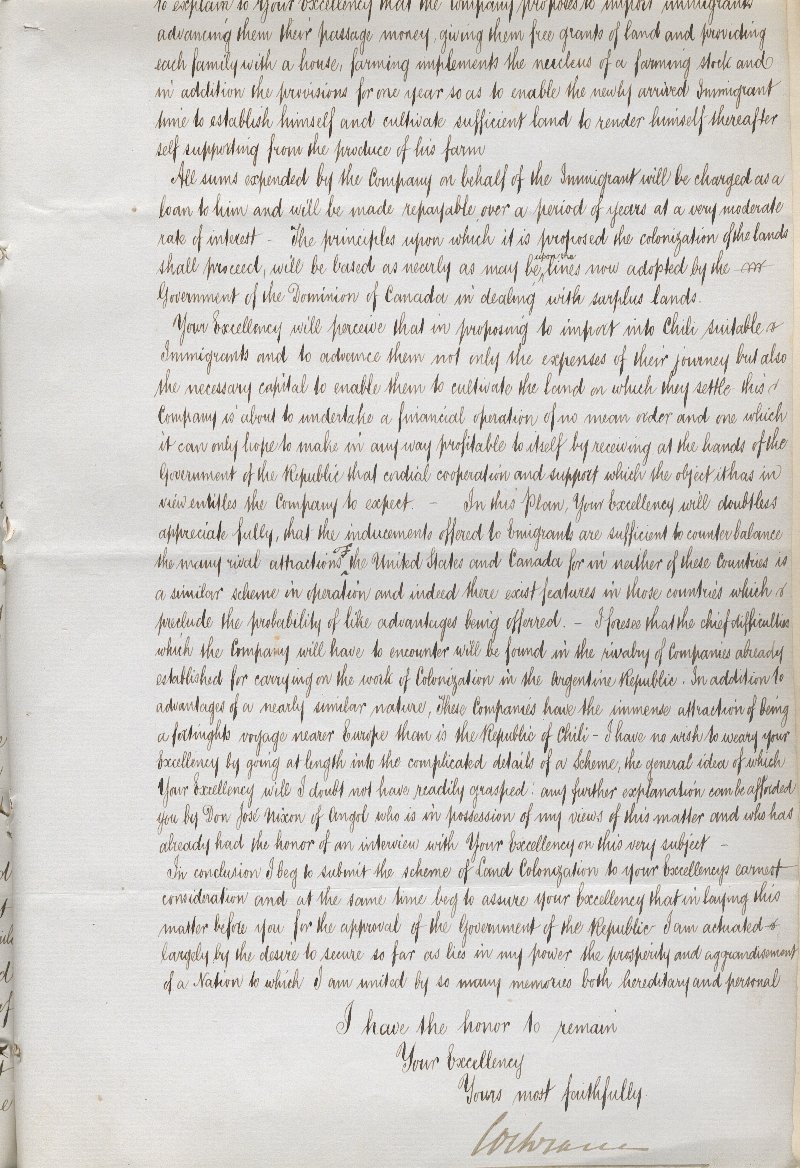 to explain to Your Excellency that the Company proposes to import immigrants
advancing them their passage money, giving them free grants of land and providing
each family with a house, farming implements the neucleus of a farming stock and
in addition the provisions for one year so as to enable the newly arrived Immigrant
time to establish himself and cultivate sufficient land to render himself thereafter
self supporting from the produce of his farm
All sums expended by the Company on behalf of the Immigrant will be charged as a
loan to him and will be made repayable over a period of years at a very moderate
rate of interest - The principles upon which it is proposed the colonization of the lands
shall proceed, will be based as nearly as may be upon the lines now adopted by the
Government of the Dominion of Canada in dealing with surplus lands.
Your Excellency will perceive that in proposing to import into Chili suitable
Immigrants and to advance them not only the expenses of their journey but also
the necessary capital to enable them to cultivate the land on which they settle this
Company is about to undertake a financial operation of no mean order and one which
it can only hope to make in any way profitable to itself by receiving at the hands of the
Government of the Republic that cordial cooperation and support which the object it has in
view entitles the Company to expect. - In this Plan, Your Excellency will doubtless
appreciate fully, that the inducements offered to Emigrants are sufficient to counterbalance
the many rival attractions of the United States and Canada for in neither of these Countries is
a similar scheme in operation and indeed there exist features in those countries which
preclude the probability of like advantages being offerred. - I foresee that the chief difficulties
which the Company will have to encounter will be found in the rivalry of Companies already
established for carrying on the work of Colonization in the Argentine Republic. In addition to
advantages of a nearly similar nature, These Companies have the immense attraction of being
a fortnights voyage nearer Europe than is the Republic of Chili - I have no wish to weary your
Excellency by going at length into the complicated details of a Scheme, the general idea of which
Your Excellency will I doubt not have readily grasped: any further explanation can be afforded
you by Don José Nixon of Angol who is in possession of my views of this matter and who has
already had the honor of an interview with Your Excellency on this very subject -
In conclusion I beg to submit the scheme of Land Colonization to your Excellencys earnest
consideration and at the same time beg to assure your Excellency that in laying this
matter before you for the approval of the Government of the Republic I am actuated
largely by the desire to secure so far as lies in my power the prosperity and aggrandisement
of a Nation to which I am united by so many memories both hereditary and personal
I have the honor to remain
Your Excellency
Yours most faithfully.
Cochrane